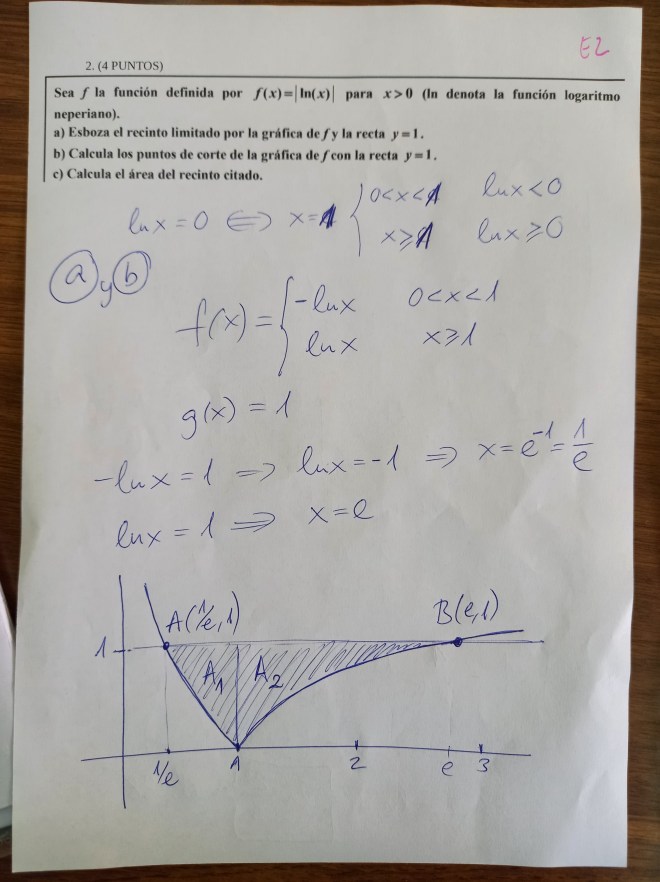 E2
2. (4 PUNTOS)
Sea f la función definida por f(x)=|ln(x)| para x>0 (ln denota la función logaritmo
neperiano).
a) Esboza el recinto limitado por la gráfica de f y la recta y=1.
b) Calcula los puntos de corte de la gráfica de f con la recta y=1.
c) Calcula el área del recinto citado.
lnx=0 ⟺ x=1 { 0<x<1 lnx<0
x≥1 lnx≥0
a y b
f(x)= { -lnx 0<x<1
lnx x≥1
g(x)=1
-lnx=1 ⟹ lnx=-1 ⟹ x=e⁻¹=1/e
lnx=1 ⟹ x=e
A(1/e,1) B(e,1)
1 A₁ A₂
1/e 1 2 e 3